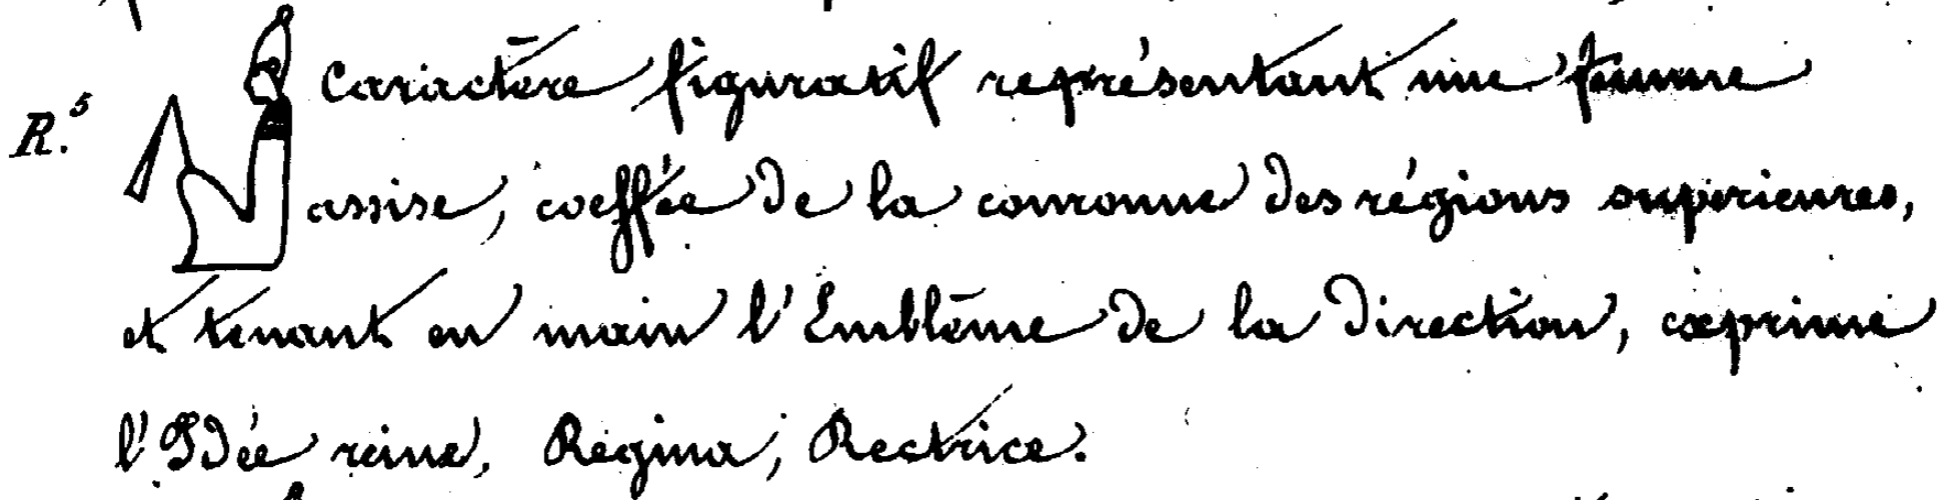 R.⁵ Caractère figuratif représentant une femme
assise, coeffée de la couronne des régions supérieures,
et tenant en main l'Emblême de la Direction, exprime
l'Idée reine, Regina, Rectrice.